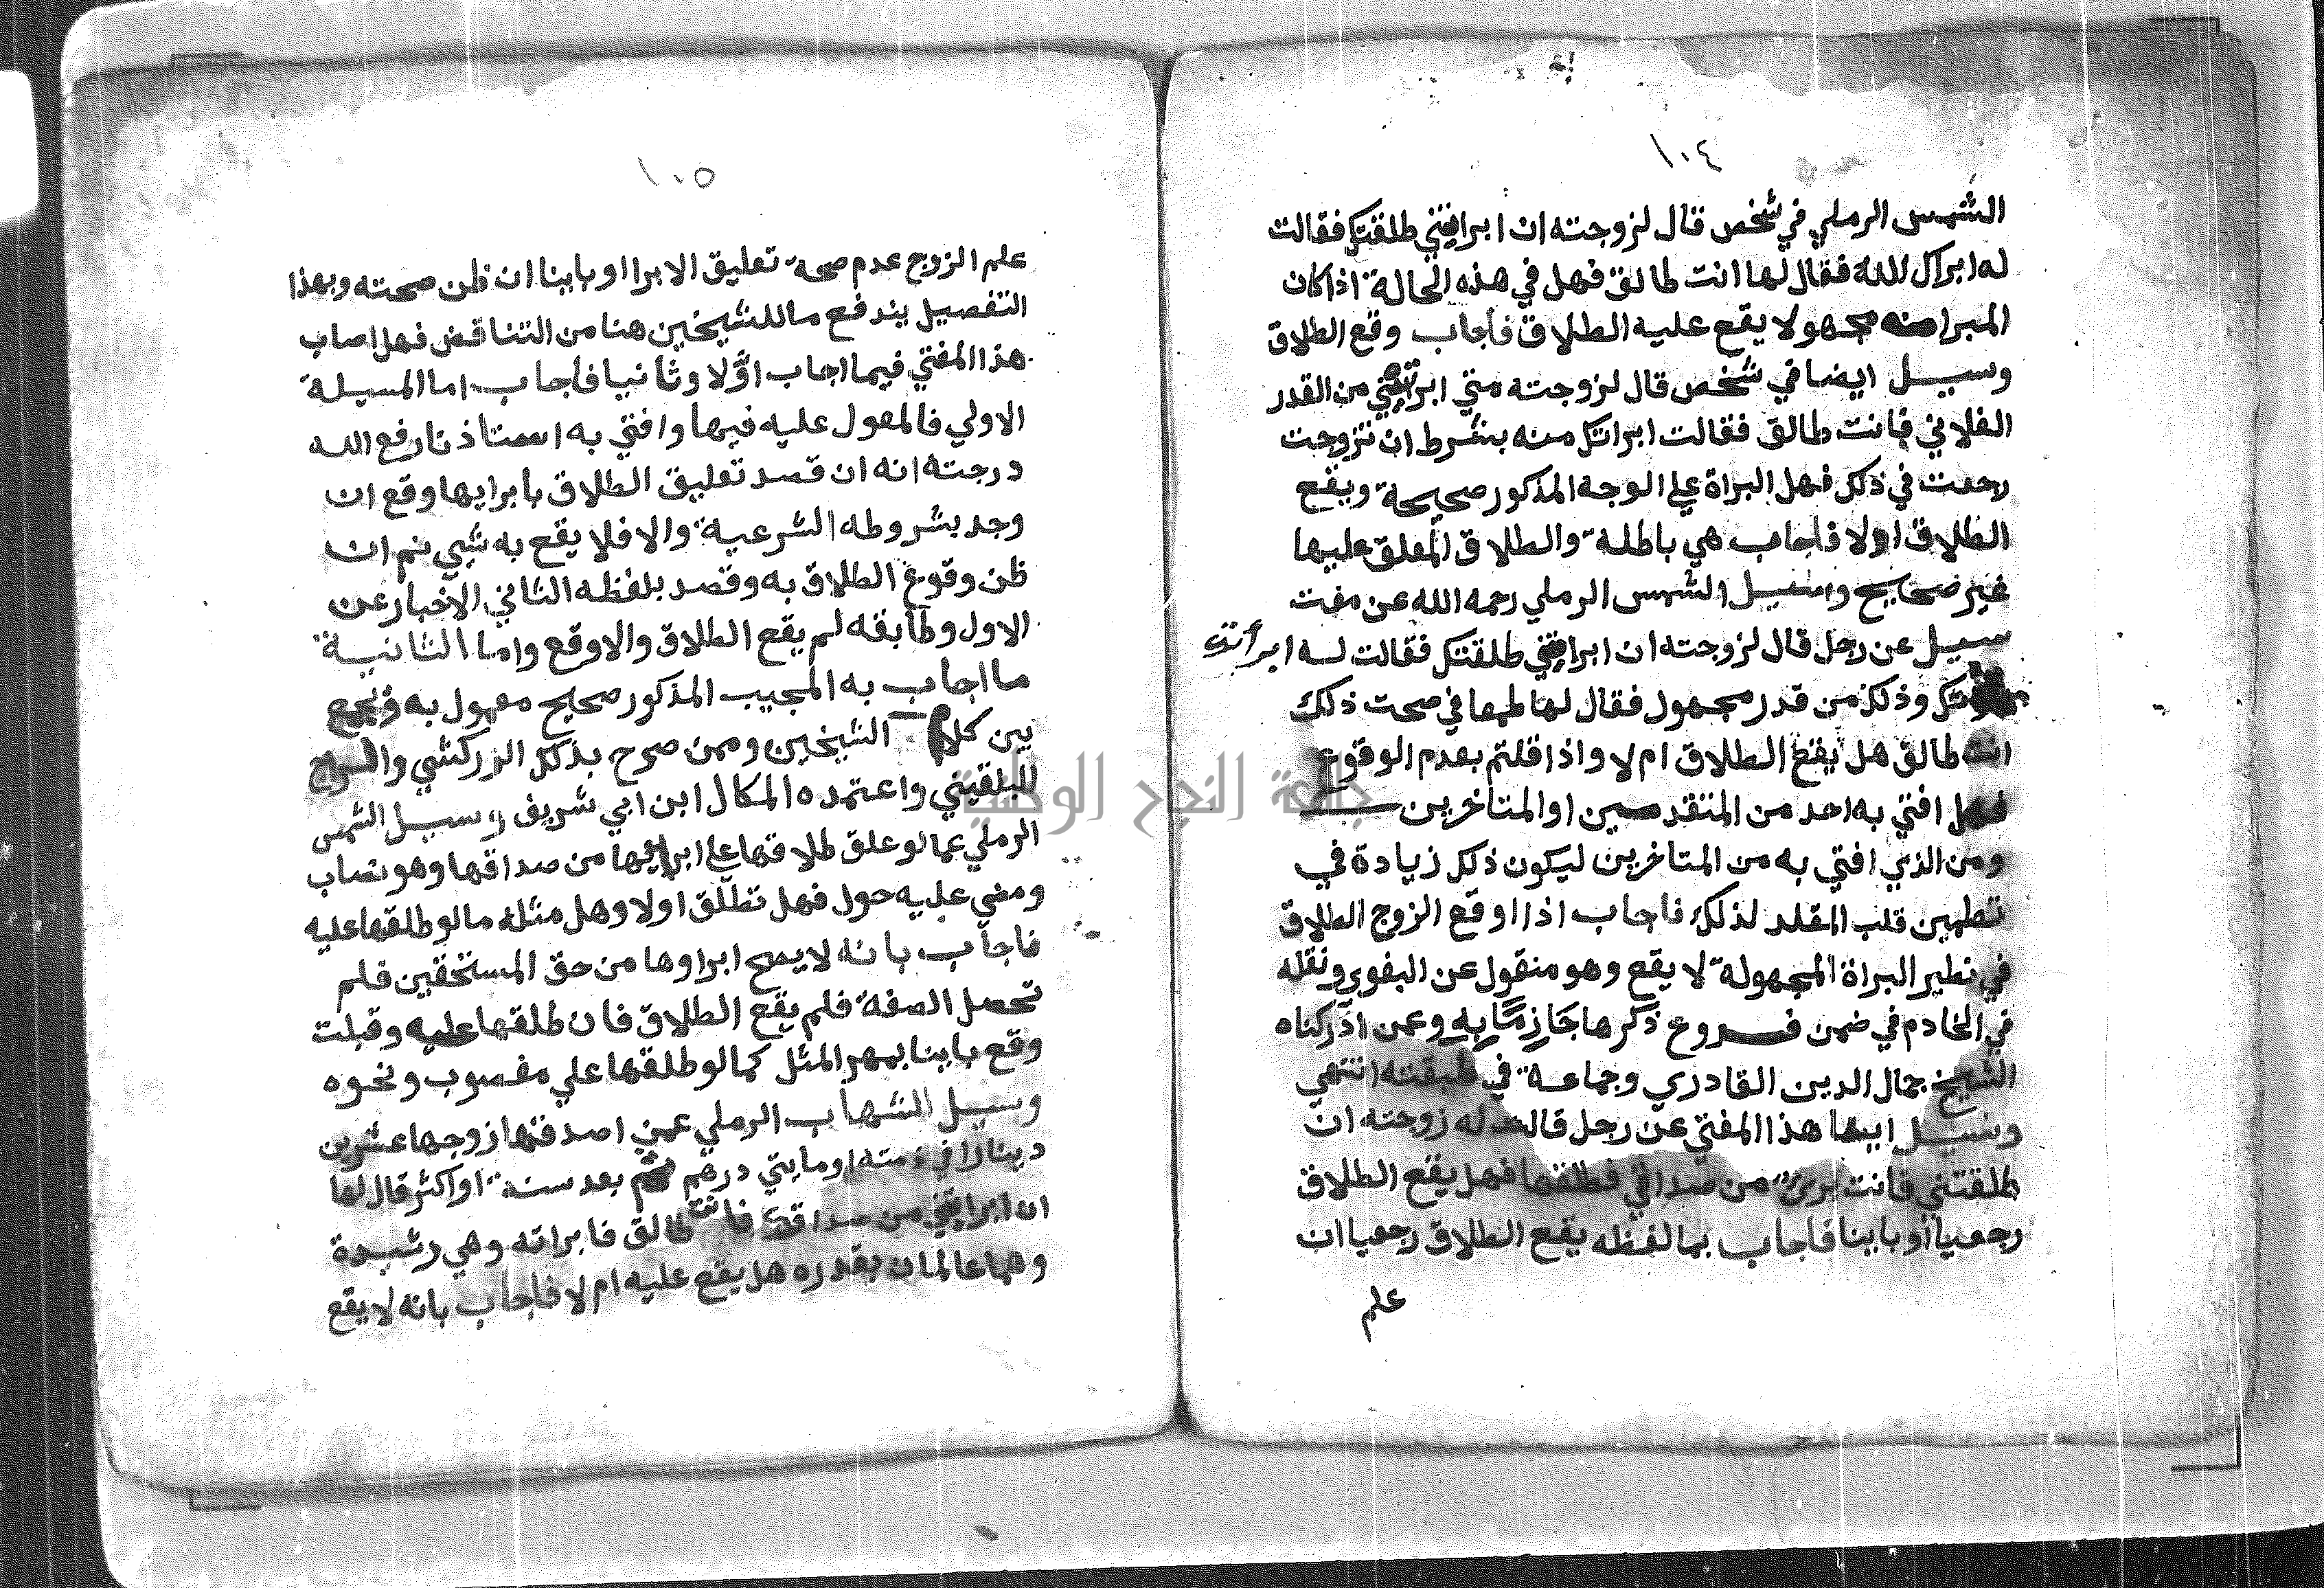 ١٠٤
الشمس الرملي في شخص قال لزوجته ان ابراتيني طلقتك فقالت
له ابراك الله فقال لها انت طالق فهل في هذه الحالة اذا كان
المبرا منه مجهولا يقع عليه الطلاق فأجاب وقع الطلاق
وسيل ايضا في شخص قال لزوجته متي ابراتيني من القدر
الفلاني فانت طالق فقالت ابراتك منه بشرط ان تزوجت
رجعت في ذلك فهل البراة علي الوجه المذكور صحيحة ويقع
الطلاق اولا فاجاب هي باطلة والطلاق المعلق عليها
غير صحايح وسيل الشمس الرملي رحمه الله عن مفت
سيل عن رجل قال لزوجته ان ابراتيني طلقتك فقالت له ابراتك
وذلك من قدر مجهول فقال لها طمعا في صحت ذلك
انت طالق هل يقع الطلاق ام لا واذا قلتم بعدم الوقوع
فهل افتي به احد من المتقدمين او المتاخرين
ومن الذي افتي به من المتاخرين ليكون ذلك زيادة في
تطمين قلب المقلد لذلك فاجاب اذا اوقع الزوج الطلاق
في نظير البراة المجهولة لا يقع وهو منقول عن البغوي ونقله
في الخادم في ضمن فروع ذكرها جَازِمًا بِهِ وعمن ادركناه
الشيخ جمال الدين القادري وجماعة في طبقته انتهي
وسيل ايضا هذا المفتي عن رجل قالت له زوجته ان
طلقتني فانت بري من صداقي فطلقها فهل يقع الطلاق
رجعيا او باينا فاجاب بما لفظه يقع الطلاق رجعيا ان
علم
١٠٥
علم الزوج عدم صحة تعليق الابرا او باينا ان ظن صحته وبهذا
التفصيل يندفع ما للشيخين هنا من التناقض فهل اصاب
هذا المفتي فيما اجاب اوّلا وثانيا فأجاب اما المسيلة
الاولي فالمعول عليه فيها وافتي به استاذنا رفع الله
درجته انه ان قصد تعليق الطلاق بابرايها وقع ان
وجد بشروطه الشرعية والا فلا يقع به شي نم ان
ظن وقوع الطلاق به وقصد بلفظه الثاني الاخبار عن
الاول وطابقه لم يقع الطلاق والا وقع واما الثانية
ما اجاب به المجيب المذكور صحيح معمول به ويجمع
بين كلام الشيخين وممن صرح بذلك الزركشي والسراج
للبلقيني واعتمده المكال ابن ابي شريف وسيل الشمس
الرملي عما لو علق طلاقها علي ابرايها من صداقها وهو نصاب
ومضي عليه حول فهل تطلق اولا وهل مثله ما لو طلقها عليه
فاجاب بانه لا يصح ابراوها من حق المستحقين فلم
تحصل الصفة فلم يقع الطلاق فان طلقها عليه وقبلت
وقع باينا بمهر المثل كما لو طلقها علي مغصوب ونحوه
وسيل الشهاب الرملي عمن اصدقها زوجها عشرين
دينارا في ذمته او مايتي درهم ثم بعد سنة او اكثر قال لها
ان ابراتيني من صداقك فانت طالق فابراته وهي رشيدة
وهما عالمان بقدره هل يقع عليه ام لا فأجاب بانه لا يقع
جامعة النجاح الوطنية